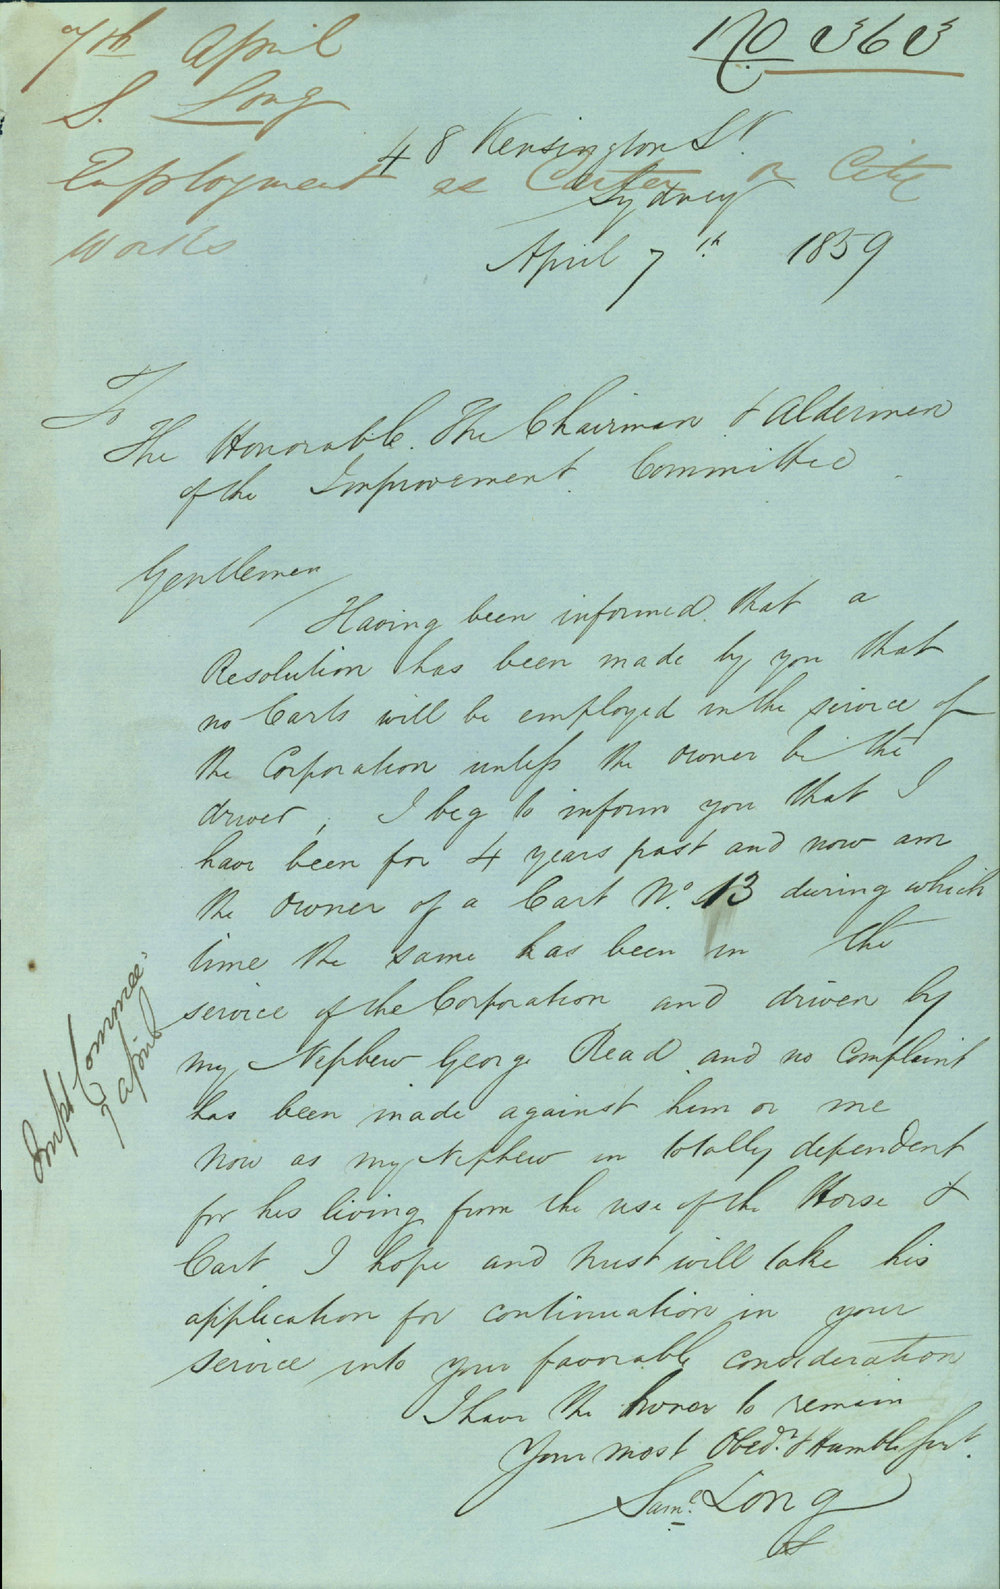 7th April
S. Long
Employment as Carter on City
Works
No 363
48 Kensington St
Sydney
April 7th 1859
To
The Honorable The Chairman & Aldermen
of the Improvement Committee
Gentlemen
Having been informed that a
Resolution has been made by you that
no Carts will be employed in the service of
the Corporation unless the owner be the
driver, I beg to inform you that I
have been for 4 years past and now am
the owner of a Cart No. 13 during which
time the same has been in the
service of the Corporation and driven by
my Nephew George Read and no Complaint
has been made against him or me
Now as my Nephew is totally dependent
for his living from the use of the Horse &
Cart I hope and trust will take his
application for continuation in your
service into your favorable consideration
I have the honor to remain
Your most Obedt & Humble Servt.
Saml. Long
Impt Committee
7 April